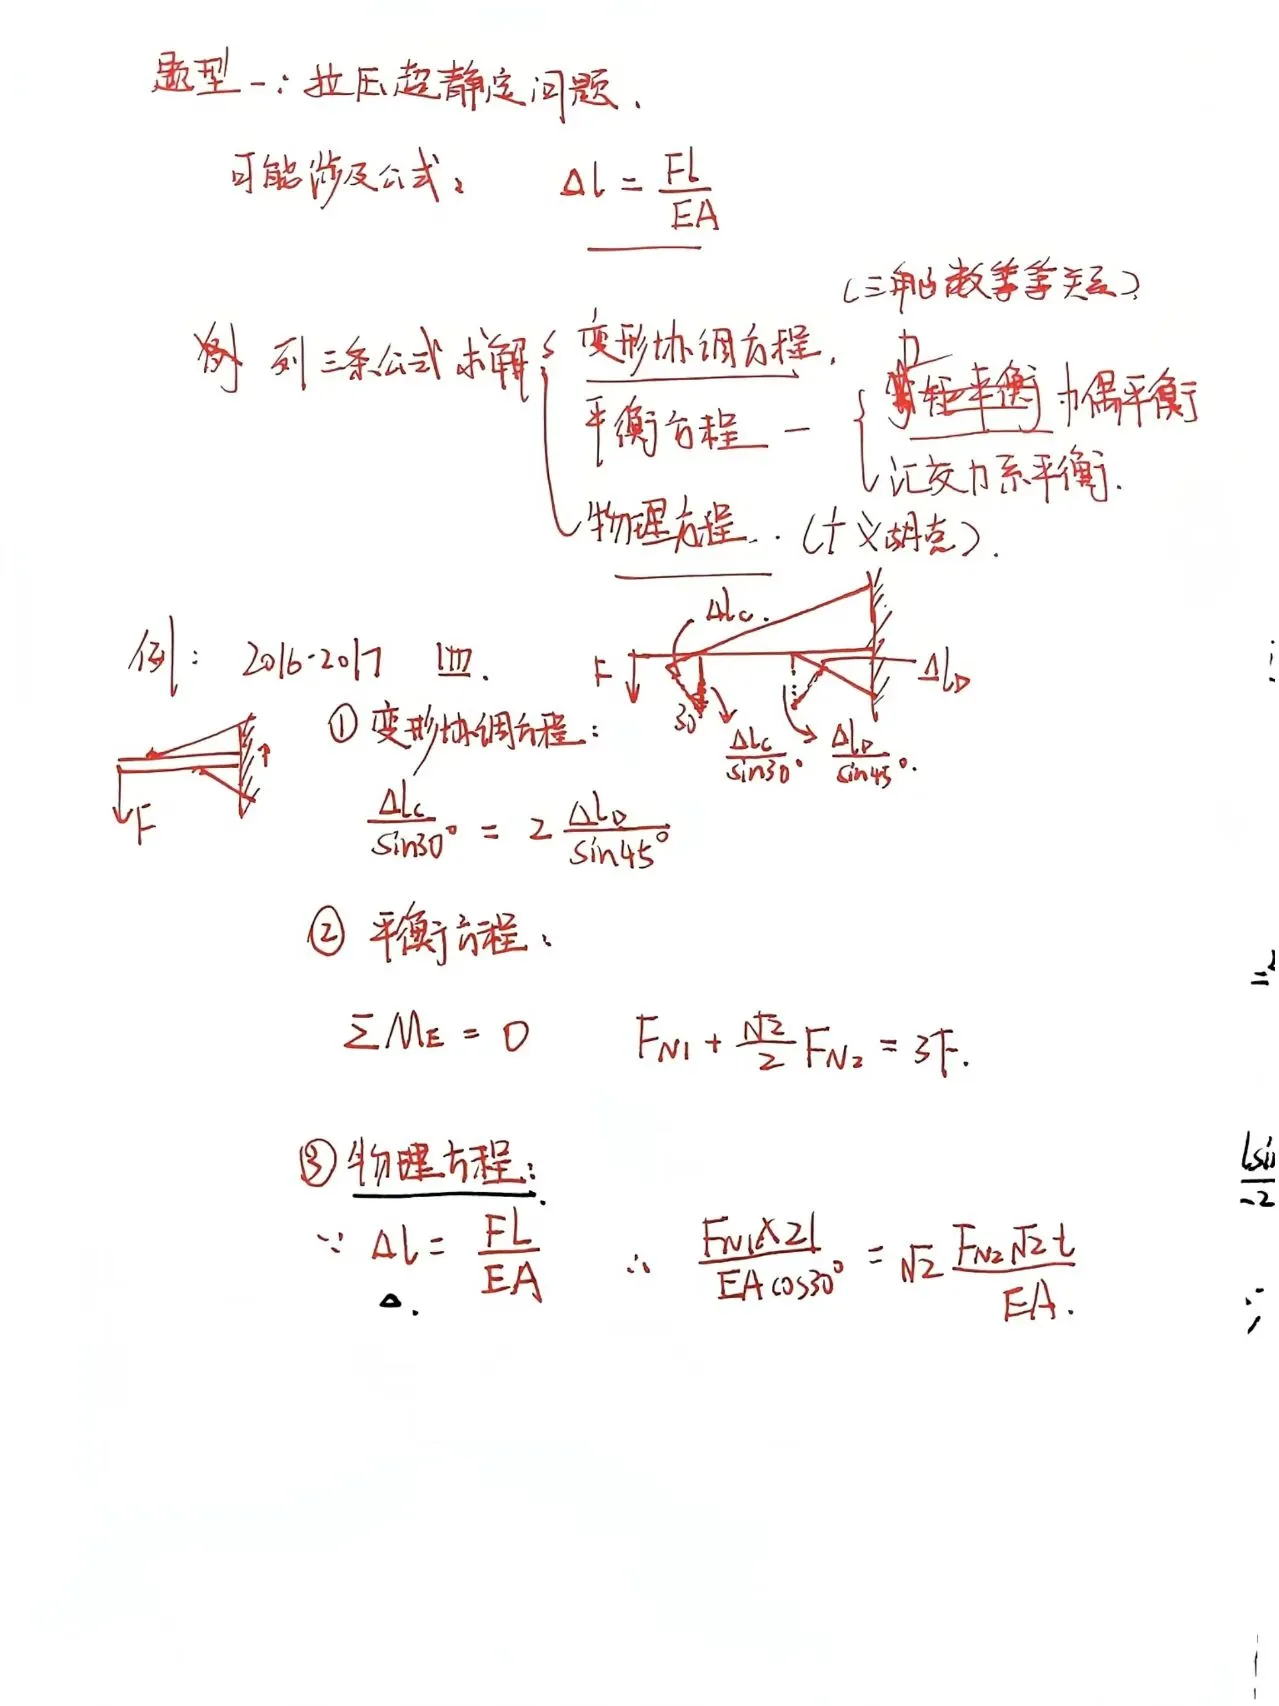 题型一：拉压超静定问题.
可能涉及公式： Δl = FL/EA
(三角函数等等关系)
列三条公式求解： 变形协调方程.
平衡方程 — 力矩平衡 力偶平衡
汇交力系平衡.
物理方程..（广义胡克）.
例： 2016-2017 四.
F Δlc. 30° Δlc/sin30° ΔlD/sin45°. ΔlD
F
① 变形协调方程：
Δlc/sin30° = 2 ΔlD/sin45°
② 平衡方程：
ΣME = 0 FN1 + √2/2 FN2 = 3F.
③ 物理方程：
∵ Δl = FL/EA ∴ FN1×2l/EAcos30° = √2 FN2√2l/EA.